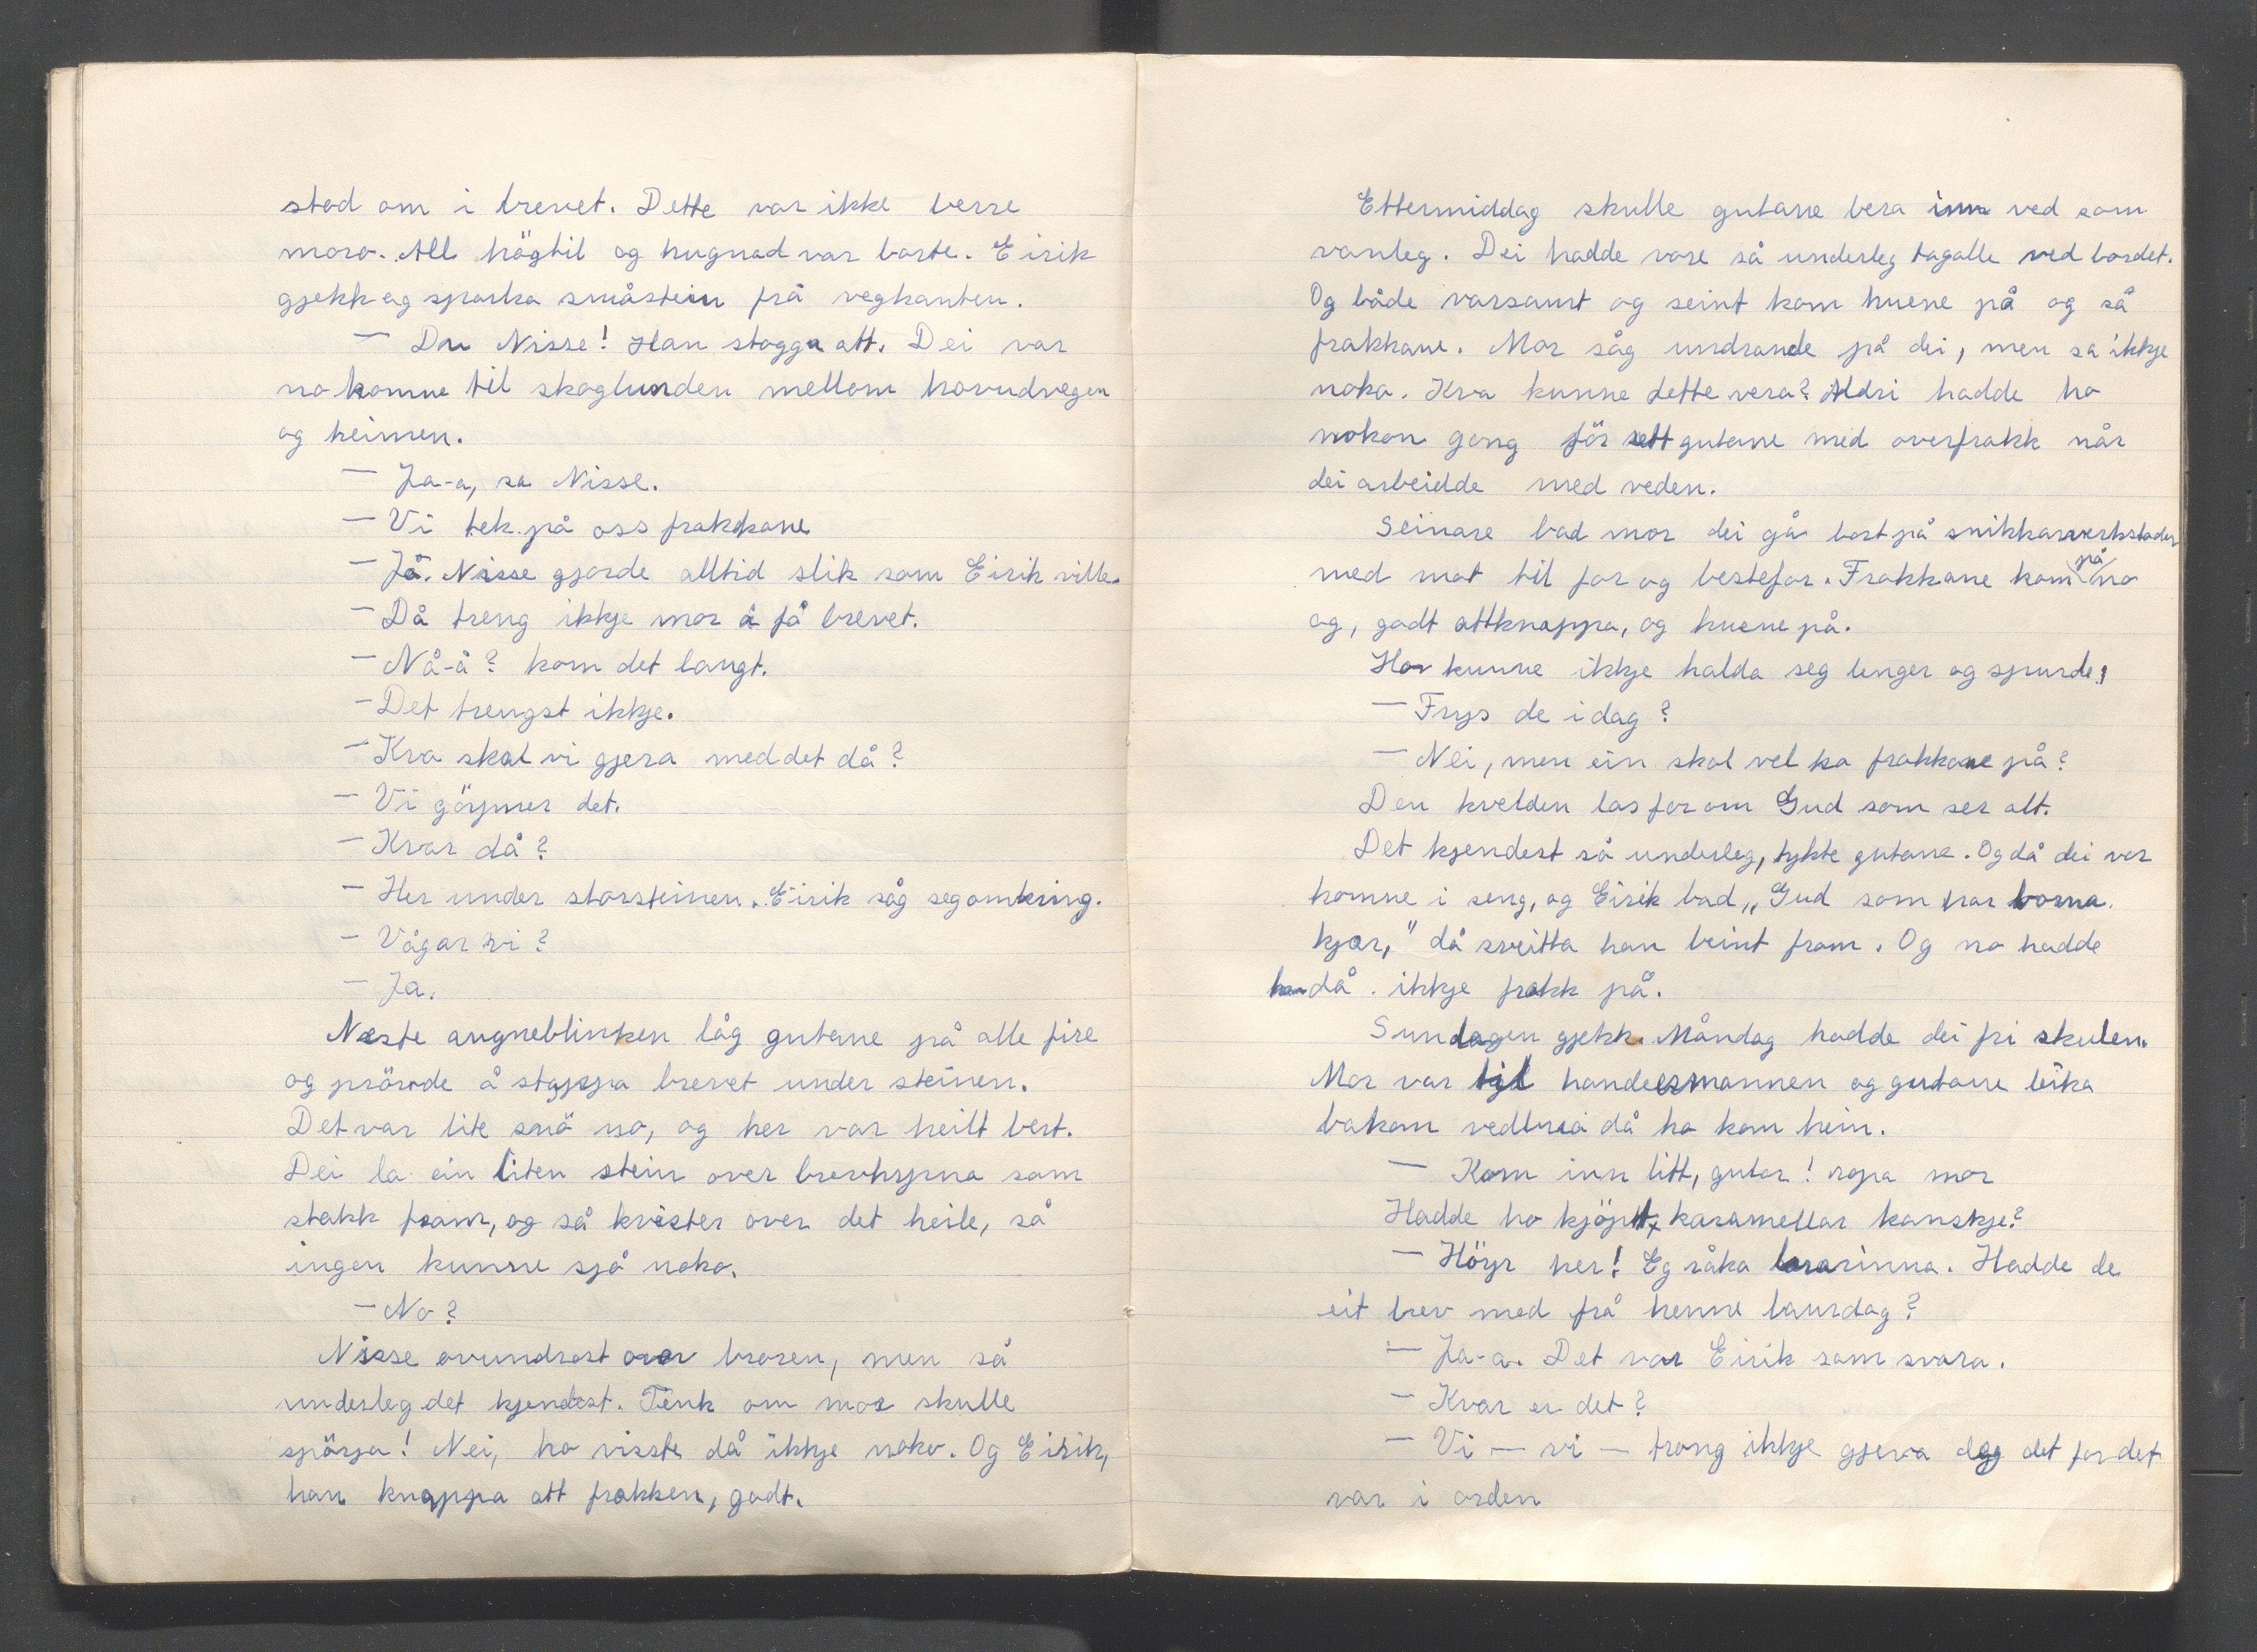 stod om i brevet. Dette var ikke berre
moro. All högtil og hugnad var borte. Eirik
gjekk og sparka småstein frå vegkanten.
— Du Nisse! Han stogga att. Dei var
no komne til skoglunden mellom hovudvegen
og heimen.
— Ja-a, sa Nisse.
— Vi tek på oss frakkane
— Ja. Nisse gjorde alltid slik som Eirik ville.
— Då treng ikkje mor å få brevet.
— Nå-å? kom det langt.
— Det trengst ikkje.
— Kva skal vi gjera med det då?
— Vi göymer det.
— Kvar då?
— Her under storsteinen. Eirik såg seg omkring.
— Vågar vi?
— Ja.
Næste augneblinken låg gutane på alle fire
og prövde å stappa brevet under steinen.
Det var lite snö no, og her var heilt bert.
Dei la ein liten stein over brevhyrna som
stakk fram, og så kvister over det heile, så
ingen kunne sjå noko.
— No?
Nisse ovundrast over broren, men så
underleg det kjendest. Tenk om mor skulle
spörja! Nei, ho visste då ikkje noko. Og Eirik,
han knappa att frakken, godt.
Ettermiddag skulle gutane bera inn ved som
vanleg. Dei hadde vore så underleg tagalle ved bordet.
Og både varsamt og seint kom huene på og så
frakkane. Mor såg undrande på dei, men sa ikkje
noko. Kva kunne dette vera? Aldri hadde ho
nokon gong för sett gutane med overfrakk når
dei arbeidde med veden.
Seinare bad mor dei gå bort på snikkarverkstaden
med mat til far og bestefar. Frakkane kom på no
og, godt attknappa, og huene på.
Ho kunne ikkje halda seg lenger og spurde:
— Frys de i dag?
— Nei, men ein skal vel ha frakkane på?
Den kvelden las far om Gud som ser alt.
Det kjendest så underleg, tykte gutane. Og då dei var
komne i seng, og Eirik bad „Gud som har borna
kjær," då sveitta han beint fram. Og no hadde
han då ikkje frakk på.
Sundagen gjekk. Måndag hadde dei fri skulen.
Mor var til handelsmannen og gutane leika
bakom vedbua då ho kom heim.
— Kom inn litt, gutar! ropa mor
Hadde ho kjöpt karamellar kanskje?
— Höyr her! Eg råka lærarinna. Hadde de
eit brev med frå henne laurdag?
— Ja-a. Det var Eirik som svara.
— Kvar er det?
— Vi — vi — trong ikkje gjeva deg det for det
var i orden